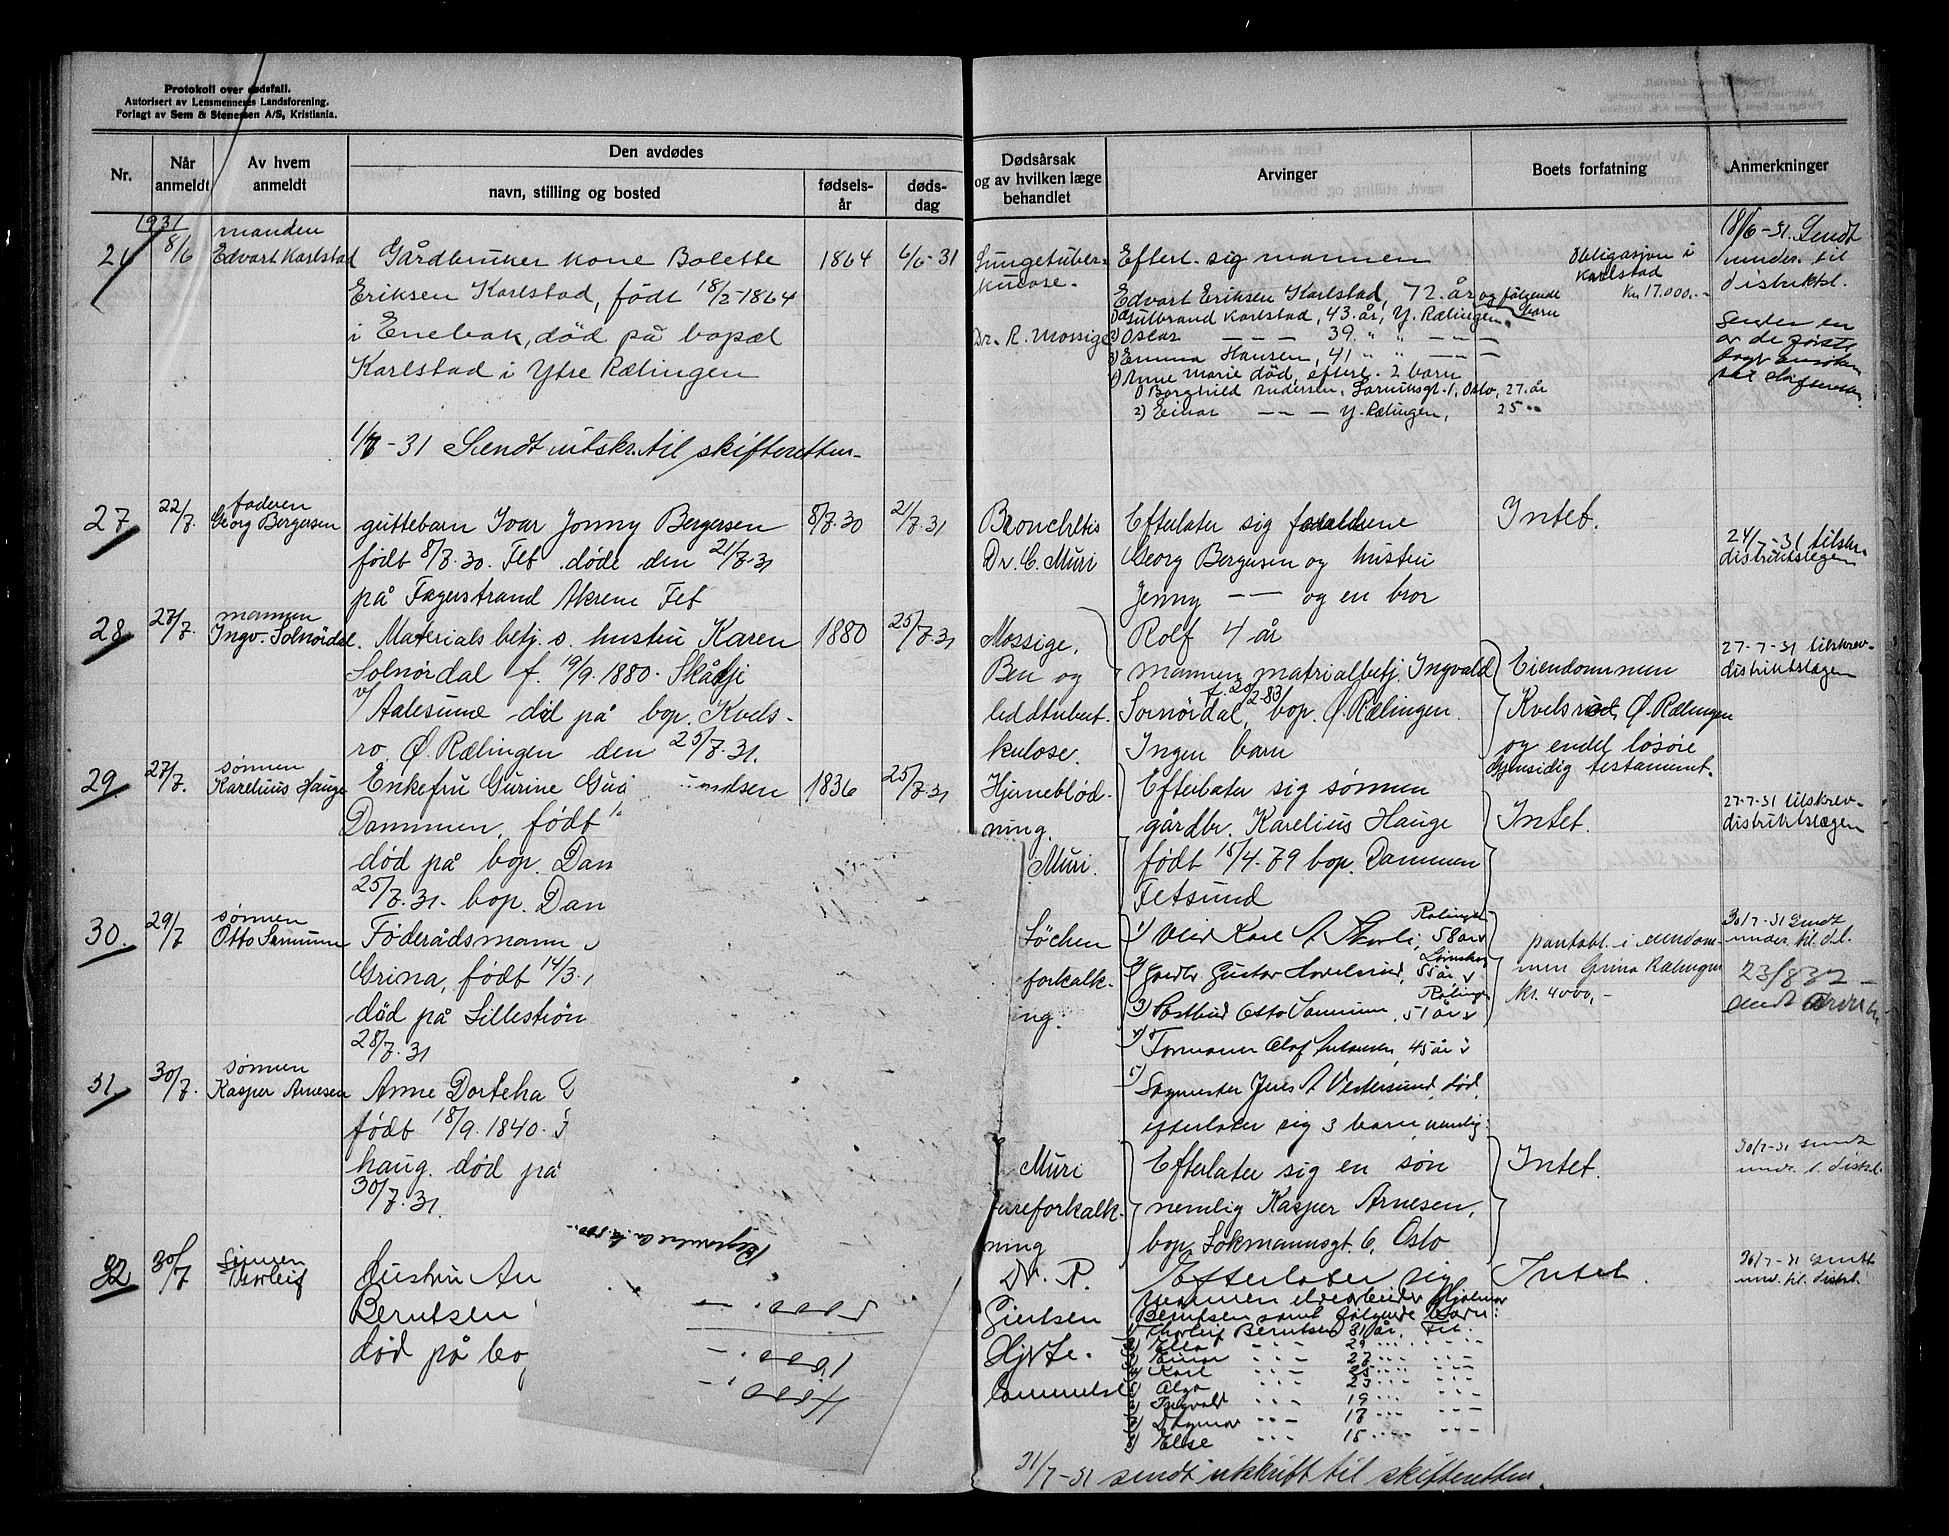 Protokoll over dødsfall.
Autorisert av Lensmennenes Landsforening.
Forlagt av Sem & Stenersen A/S, Kristiania.
Nr.
Når anmeldt
Av hvem anmeldt
Den avdødes
navn, stilling og bosted
fødsels-år
døds-dag
Dødsårsak og av hvilken læge behandlet
Arvinger
Boets forfatning
Anmerkninger
1931
8/6
manden
Edvart Karlstad
Gårdbruker kone Bolette
Eriksen Karlstad, født 18/2-1864
i Enebak, død på bopæl
Karlstad i Ytre Rælingen
1864
6/6-31
Lungetuber-
kulose.
Dr. R. Mossige
Efterl. sig mannen
Edvart Eriksen Karlstad, 72 år og følgende
barn
1) Gulbrand Karlstad, 43 år, Y. Rælingen
2) Oskar — — — 39 " " — — —
3) Emma Hansen, 41 " " — — —
4) Anne Marie død, efterl. 2 barn
1) Borghild Andersen, Oslo, 27 år
2) Einar — — — Y. Rælingen, 25 "
Obligasjon i
Karlstad
Kr. 17.000.-
18/6-31. Sendt
under. til
distriktsl.
1/7-31 Sendt utskr. til skifteretten
27
22/7.
faderen
Georg Bergersen
guttebarn Ivar Jonny Bergersen
født 8/7.30. Fet døde den 21/7.31
på Fagerstrand Akrene Fet
8/7.30
21/7.31
Bronchitis
Dr. C. Muri
Efterlater sig forældrene
Georg Bergersen og hustru
Jenny — — og en bror
Rolf 4 år
Intet.
24/7-31 tilskr.
distriktslegen
28
27/7.
mannen
Ingv. Solnørdal.
Materialbetj.s. hustru Karen
Solnørdal f. 19/9.1880. Skådji
v/ Aalesund død på bop. Kvels-
ro Ø. Rælingen den 25/7.31.
1880
25/7.31
Mossige.
Ben og
leddtuber-
kulose.
mannen matrialbetj. Ingvald
Solnørdal, bop. Ø. Rælingen.
Ingen barn
Eiendommen
Kvelsro, Ø. Rælingen
og endel løsøre
Gjensidig testament.
27-7-31 tilskrev.
distriktslægen
29.
27/7.
sønnen
Karelius Hauge
Enkefru Gurine Gu
ndsen
Dammen, født
død på bop. Dam
25/7.31. bop. Dam
1836
25/7.31
Hjerneblød-
ning.
Muri.
Efterlater sig sønnen
gårdbr. Karelius Hauge
født 15/4.79 bop. Dammen
Fetsund
Intet.
27-7-31 tilskrev.
distriktslægen
30.
29/7
sønnen
Otto
Føderådsmann
Grina, født 14/3.
død på Lillestrøm
28/7.31
forkalk-
ing.
58 år
2) Gårdbr. Gustav
55 år
Rælingen
3) Postbud Otto
51 år
4) Formann Olaf
45 år
5) Sagmester Jens A. Vestersund, død,
efterlater sig 3 barn nemlig:
pantobl. i eiendom-
men Grina Rælingen
kr. 4000,-
30/7-31 sendt
under. til. d.l.
23/8 32
sendt
31.
30/7.
sønnen
Kasper Arnesen
Anne Dorthea
født 18/9.1840.
haug. død på
30/7.31.
Muri
åreforkalk-
ning
Efterlater sig en søn
nemlig Kasper Arnesen,
bop. Løkmannsgt. 6, Oslo
Intet.
30/7-31 sendt
undr. t. distrl.
32
30/7
Sønnen
Thorleif
Hustru An
Berntsen
død på bo
Dr. R.
Giertsen
Hjerte-
lammelse
Efterlater sig
mannen Hjalmar
Berntsen samt følgende barn:
1) Thorleif Berntsen 31 år, Fet.
2) Ella — " — 29
3) Einar — " — 27
4) Karl — " — 25
5) Alga — " — 23
6) Ingvald — " — 19
7) Dagmar — " — 17
8) Else — " — 15
Intet.
30/7-31 sendt
und. til. distrl.
1000.-
4000.-
31/7-31 sendt utskrift til skifteretten.